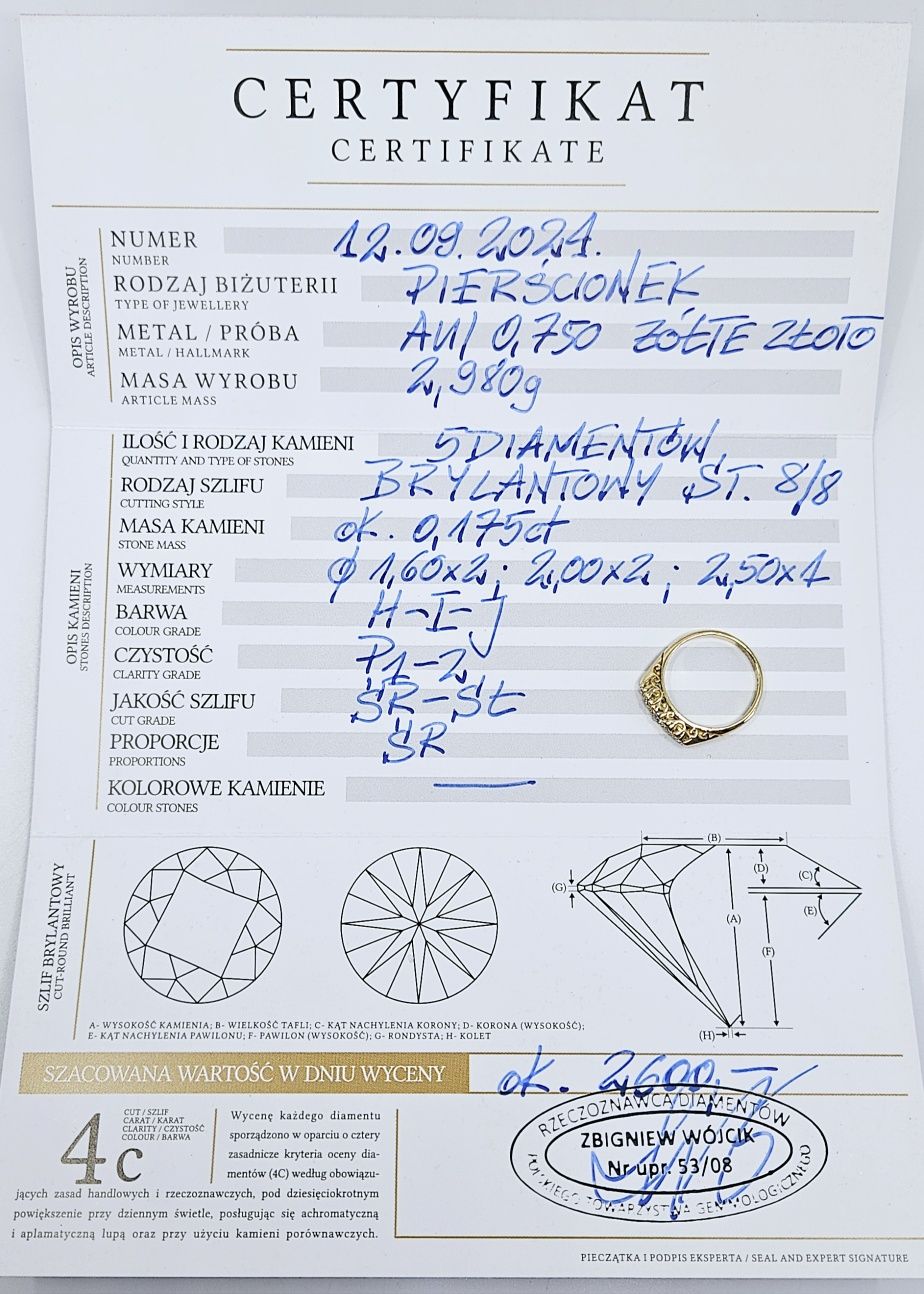 CERTYFIKAT
CERTIFIKATE
OPIS WYROBU
ARTICLE DESCRIPTION
NUMER 12.09.2024.
NUMBER
RODZAJ BIŻUTERII PIERŚCIONEK
TYPE OF JEWELLERY
METAL / PRÓBA AU/ 0,750 ŻÓŁTE ZŁOTO
METAL / HALLMARK
MASA WYROBU 2,980g
ARTICLE MASS
OPIS KAMIENI
STONES DESCRIPTION
ILOŚĆ I RODZAJ KAMIENI 5 DIAMENTÓW,
QUANTITY AND TYPE OF STONES
RODZAJ SZLIFU BRYLANTOWY ST. 8/8
CUTTING STYLE
MASA KAMIENI ok. 0,175ct
STONE MASS
WYMIARY ϕ 1,60x2; 2,00x2; 2,50x1
MEASUREMENTS
BARWA H-I-J
COLOUR GRADE
CZYSTOŚĆ P1-2
CLARITY GRADE
JAKOŚĆ SZLIFU ŚR-SŁ
CUT GRADE
PROPORCJE ŚR
PROPORTIONS
KOLOROWE KAMIENIE —
COLOUR STONES
SZLIF BRYLANTOWY
CUT-ROUND BRILLIANT
(B)
(G)
(D)
(C)
(A)
(E)
(F)
(H)
A- WYSOKOŚĆ KAMIENIA; B- WIELKOŚĆ TAFLI; C- KĄT NACHYLENIA KORONY; D- KORONA (WYSOKOŚĆ);
E- KĄT NACHYLENIA PAWILONU; F- PAWILON (WYSOKOŚĆ); G- RONDYSTA; H- KOLET
SZACOWANA WARTOŚĆ W DNIU WYCENY ok. 2,600,-
4c
CUT / SZLIF
CARAT / KARAT
CLARITY / CZYSTOŚĆ
COLOUR / BARWA
Wycenę każdego diamentu
sporządzono w oparciu o cztery
zasadnicze kryteria oceny dia-
mentów (4C) według obowiązu-
jących zasad handlowych i rzeczoznawczych, pod dziesięciokrotnym
powiększenie przy dziennym świetle, posługując się achromatyczną
i aplamatyczną lupą oraz przy użyciu kamieni porównawczych.
RZECZOZNAWCA DIAMENTÓW
ZBIGNIEW WÓJCIK
Nr upr. 53/08
POLSKIEGO TOWARZYSTWA GEMMOLOGICZNEGO
PIECZĄTKA I PODPIS EKSPERTA / SEAL AND EXPERT SIGNATURE